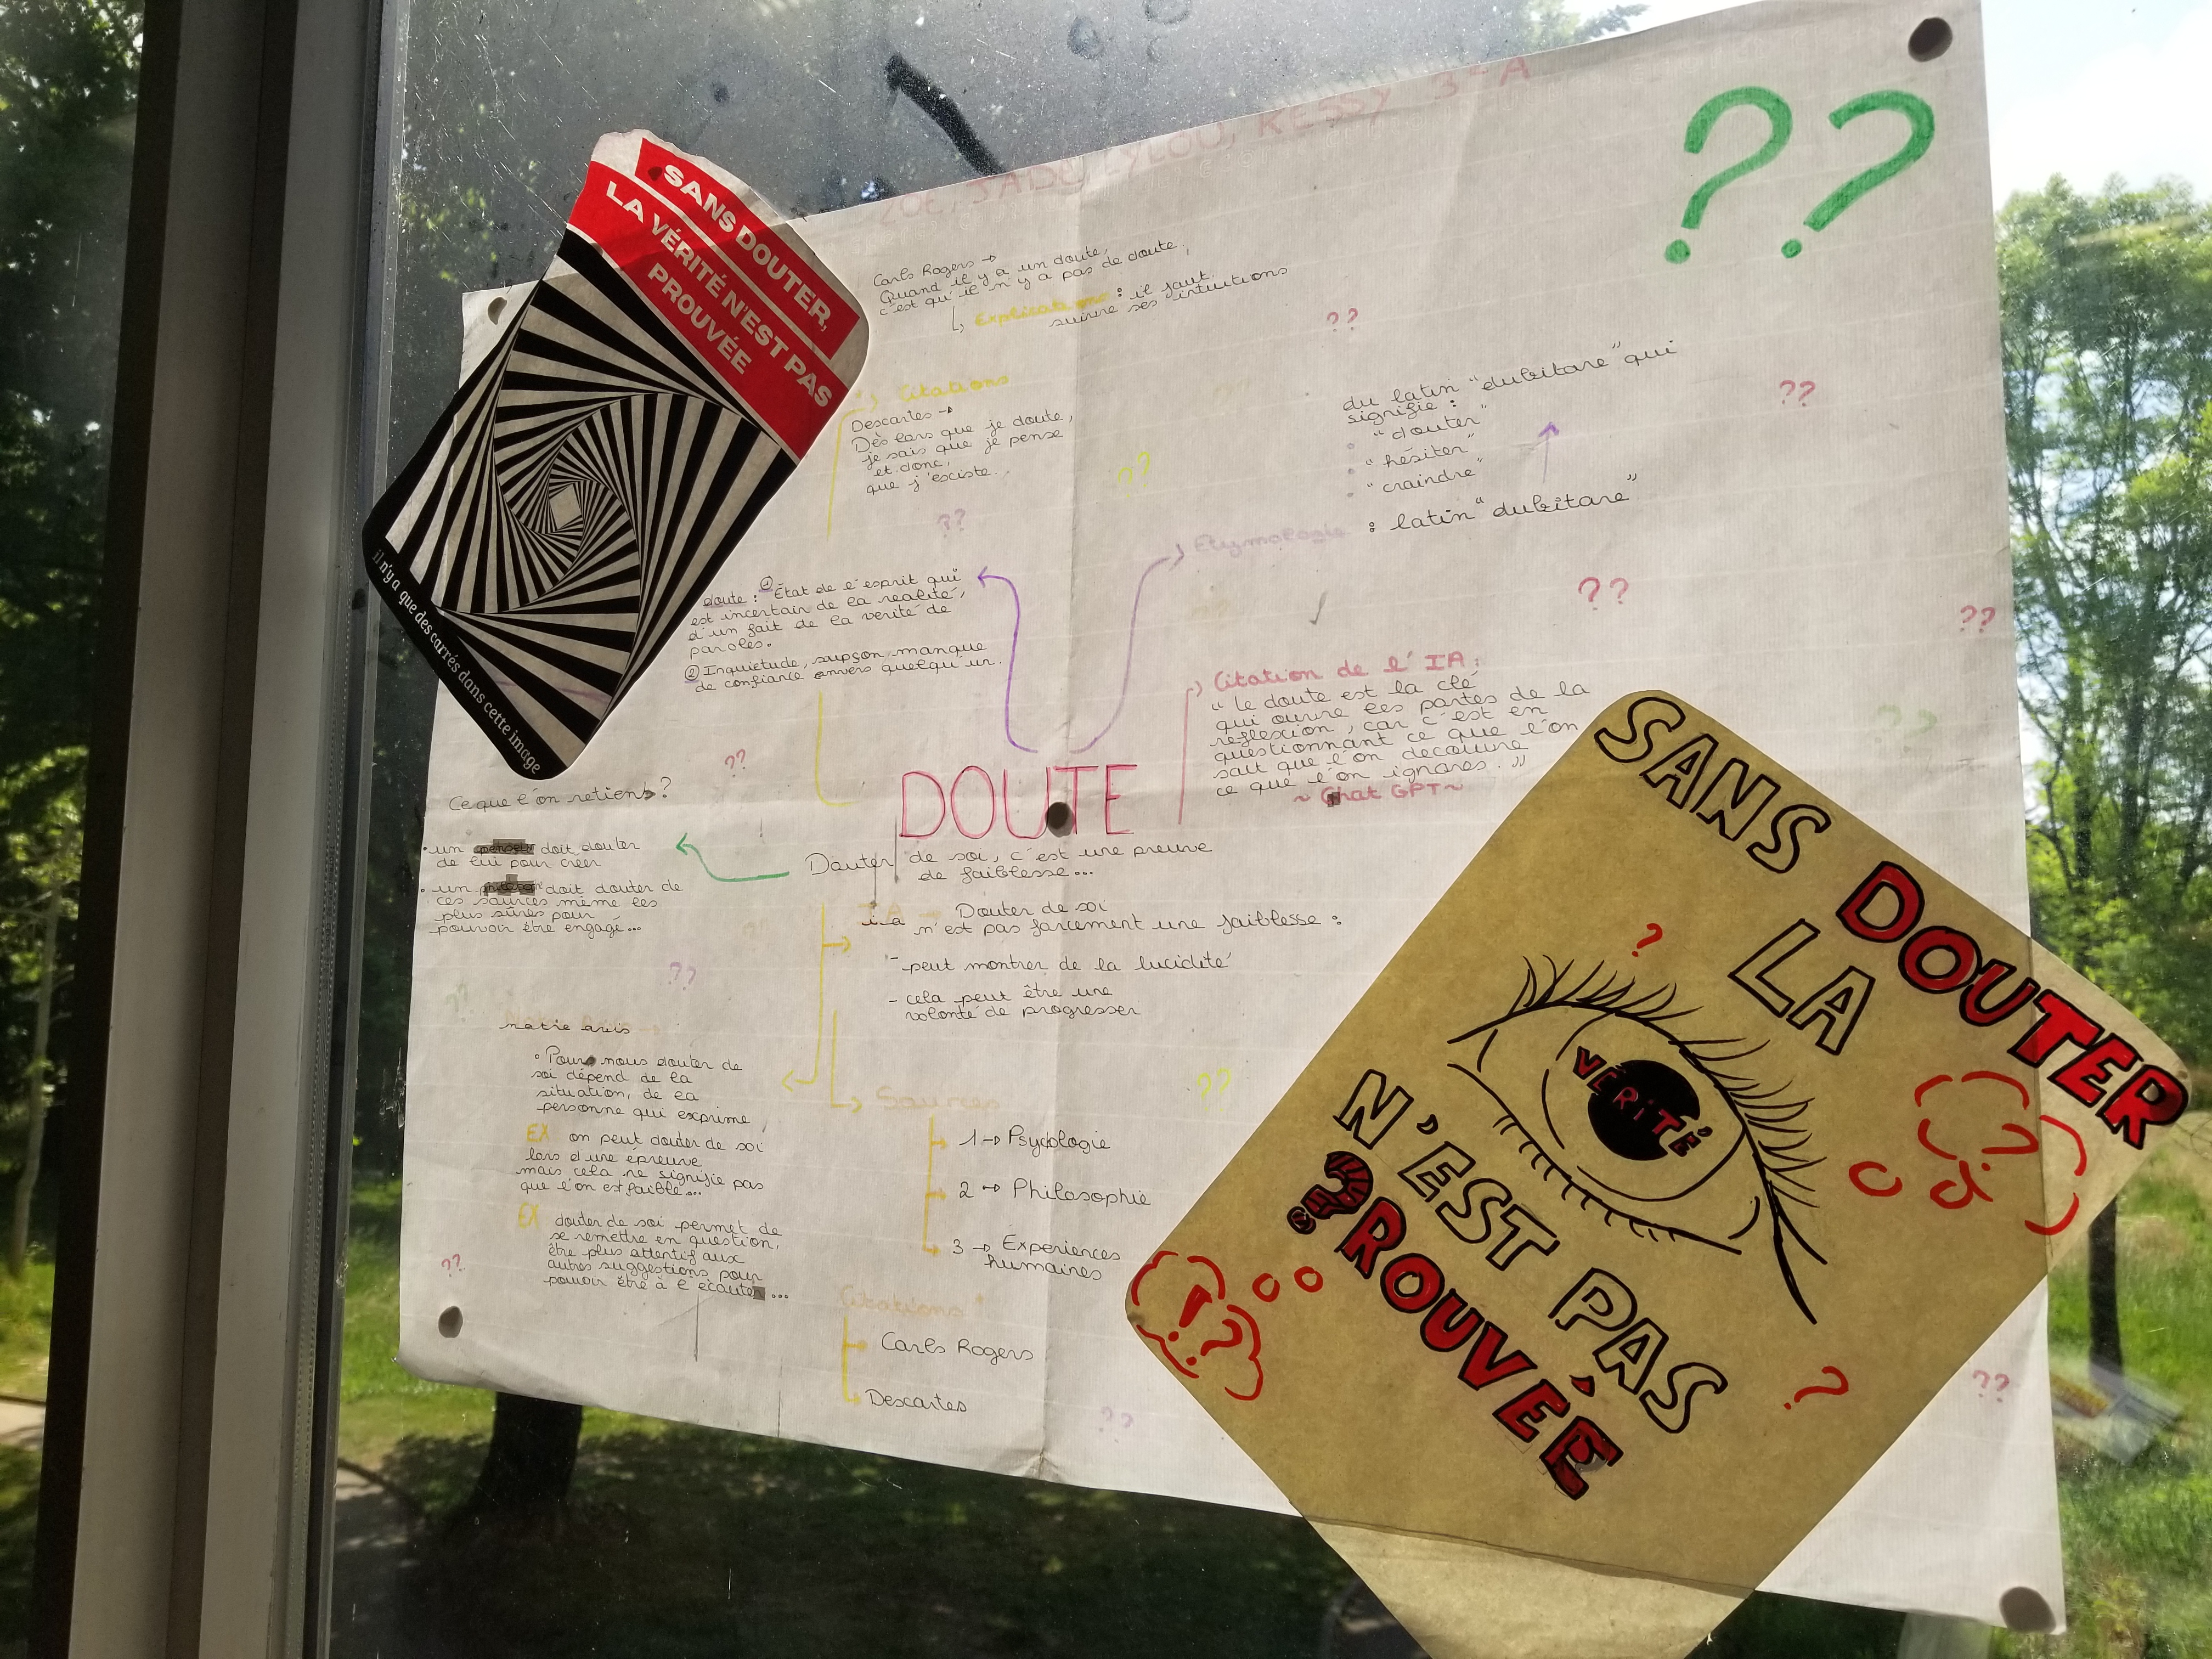 ZOÉ, JADE, LYLOU, KESSY 3-A
??
SANS DOUTER,
LA VÉRITÉ N'EST PAS
PROUVÉE
il n'y a que des carrés dans cette image
Carls Rogers →
Quand il y a un doute,
c'est qu'il n'y a pas de doute,
Explications : il faut
suivre ses intuitions
Citations
Descartes →
Dès lors que je doute,
je sais que je pense
et donc,
que j'esciste.
du latin "dubitare" qui
signifie :
• "douter"
• "hésiter"
• "craindre"
Etymologie : latin "dubitare"
doute : ① État de l'esprit qui
est incertain de la réalité,
d'un fait de la verité de
paroles.
② Inquietude, supçon, manque
de confiance envers quelqu'un.
Citation de l'IA :
" le doute est la clé
qui ouvre les portes de la
réflexion, car c'est en
questionnant ce que l'on
sait que l'on decouvre
ce que l'on ignores. "
~ Chat GPT ~
DOUTE
Douter de soi, c'est une preuve
de faiblesse...
Ce que l'on retient ?
• un doit douter
de lui pour créer
• un doit douter de
ces sources même les
plus sûres pour
pouvoir être engagé...
i.a → Douter de soi
n'est pas forcement une faiblesse :
- peut montrer de la lucidité
- cela peut être une
volonté de progresser
notre avis
• Pour nous douter de
soi dépend de la
situation, de la
personne qui exprime
EX on peut douter de soi
lors d'une épreuve
mais cela ne signifie pas
que l'on est faible...
EX douter de soi permet de
se remettre en question,
être plus attentif aux
autres suggestions pour
pouvoir être à l'écouter...
Sources
1 → Psycologie
2 → Philosophie
3 → Experiences
humaines
Citations
Carls Rogers
Descartes
SANS DOUTER
LA
VÉRITÉ
N'EST PAS
?ROUVÉE
?
?
!?
?